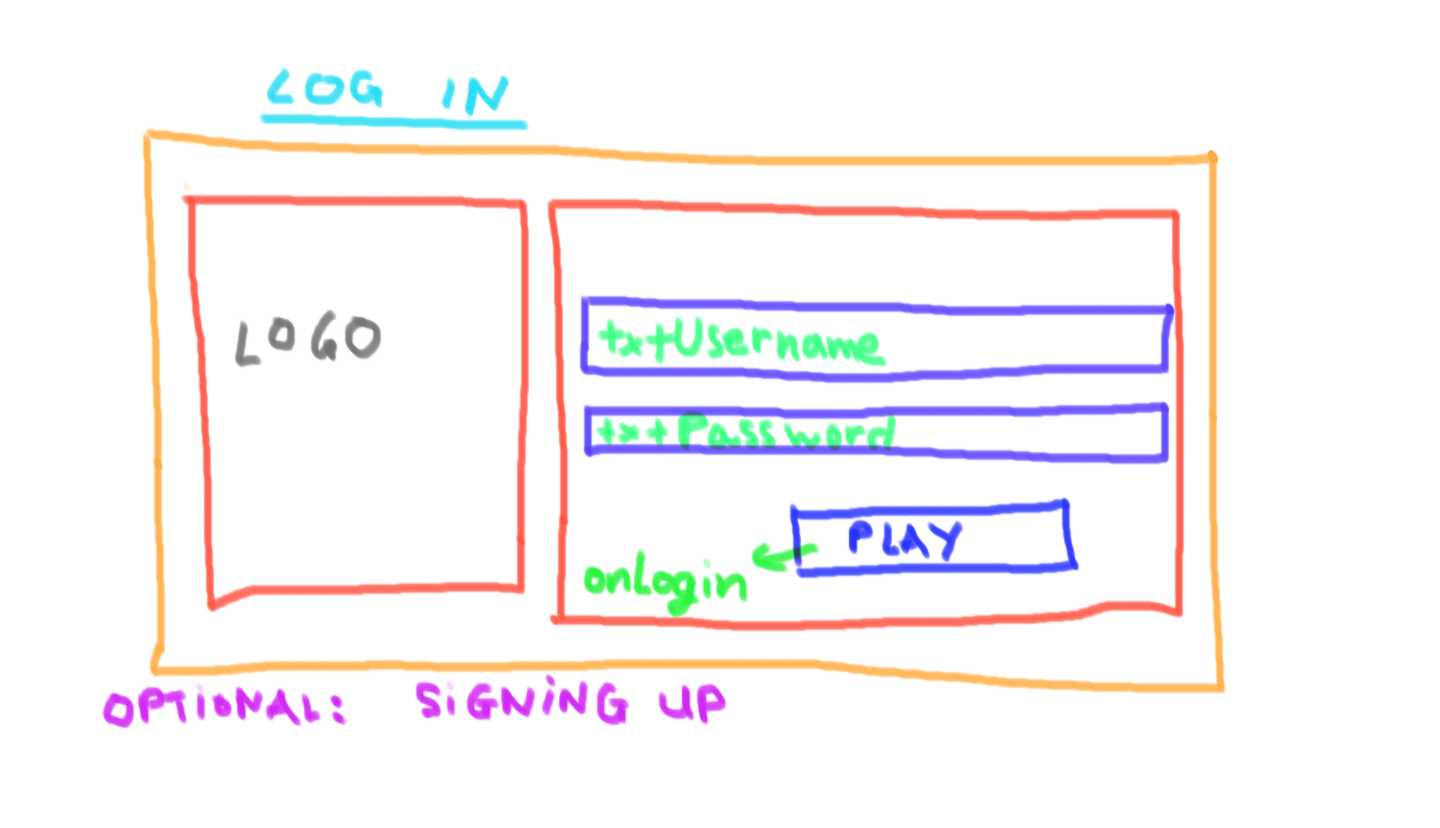 LOG IN
LOGO
txtUsername
txtPassword
PLAY
onLogin
OPTIONAL: SIGNING UP